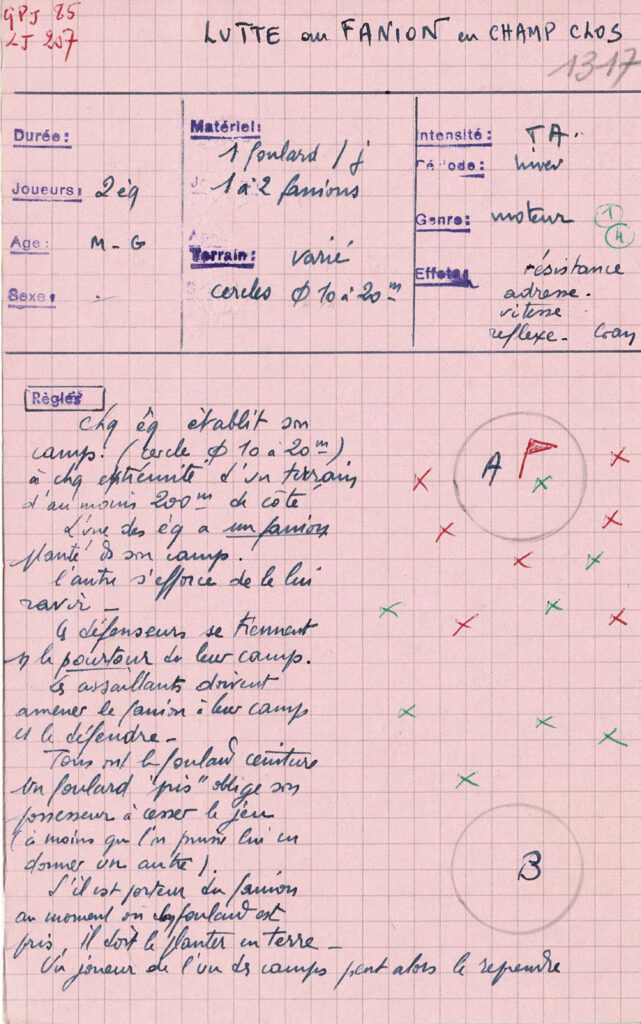 GPJ 85
LJ 207
LUTTE au FANION en CHAMP CLOS
13-17
Durée:
Joueurs: 2 éq
Age: M - G
Sexe: -
Matériel:
1 foulard / j
1 à 2 fanions
Terrain: varié
cercles φ 10 à 20 m
Intensité: TA.
Période: hiver
Genre: moteur 1 4
Effets: résistance
adresse.
vitesse
reflexe - Cran
Règles
Chq éq établit son
camp. (cercle φ 10 à 20 m)
à chq extrémité d'un terrain
d'au moins 200 m de côté
L'une des éq a un fanion
planté ds son camp.
l'autre s'efforce de le lui
ravir -
Ls défenseurs se tiennent
le pourtour de leur camp.
Ls assaillants doivent
amener le fanion à leur camp
et le défendre -
Tous ont le foulard ceinture
Un foulard "pris" oblige son
possesseur à cesser le jeu
(à moins qu l'on puisse lui en
donner un autre).
S'il est porteur du fanion
au moment où foulard est
pris, il doit le planter en terre -
Un joueur de l'un des camps peut alors le reprendre
A
B